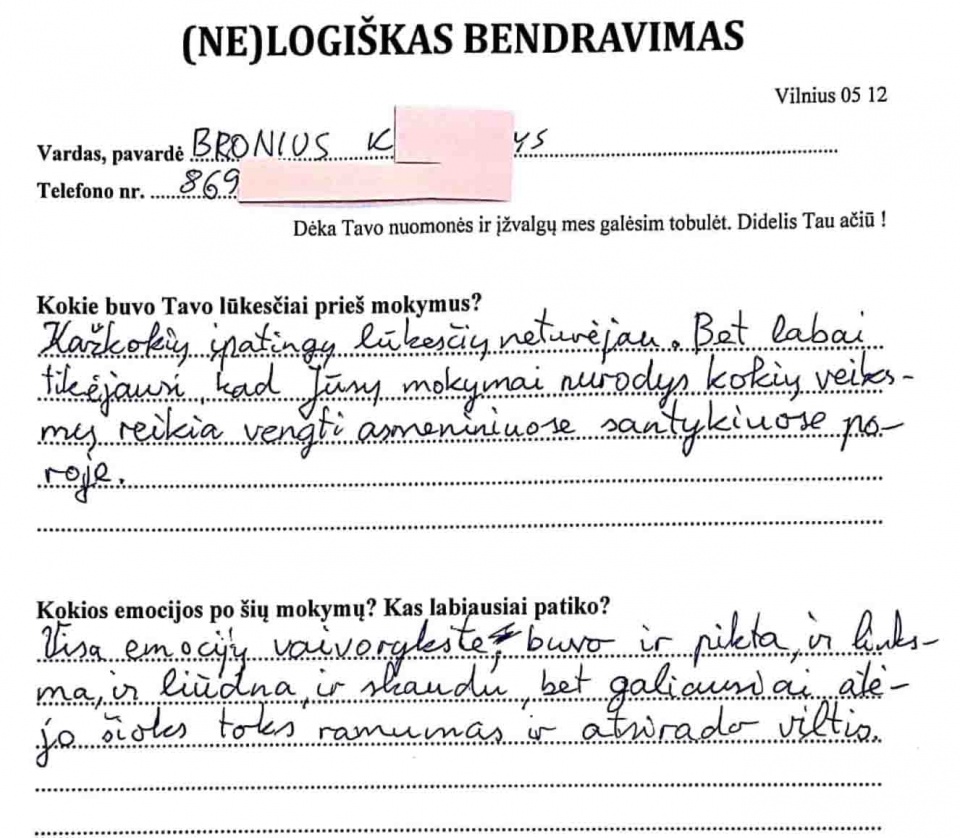 (NE)LOGIŠKAS BENDRAVIMAS
Vilnius 05 12
Vardas, pavardė BRONIUS K ys
Telefono nr. 869
Dėka Tavo nuomonės ir įžvalgų mes galėsim tobulėt. Didelis Tau ačiū !
Kokie buvo Tavo lūkesčiai prieš mokymus?
Kažkokių ypatingų lūkesčių neturėjau. Bet labai
tikėjausi, kad Jūsų mokymai nurodys kokių veiks-
mų reikia vengti asmeniniuose santykiuose po-
roje.
Kokios emocijos po šių mokymų? Kas labiausiai patiko?
Visa emocijų vaivorykštė, buvo ir pikta, ir links-
ma, ir liūdna, ir skaudu, bet galiausiai atė-
jo šioks toks ramumas ir atsirado viltis.